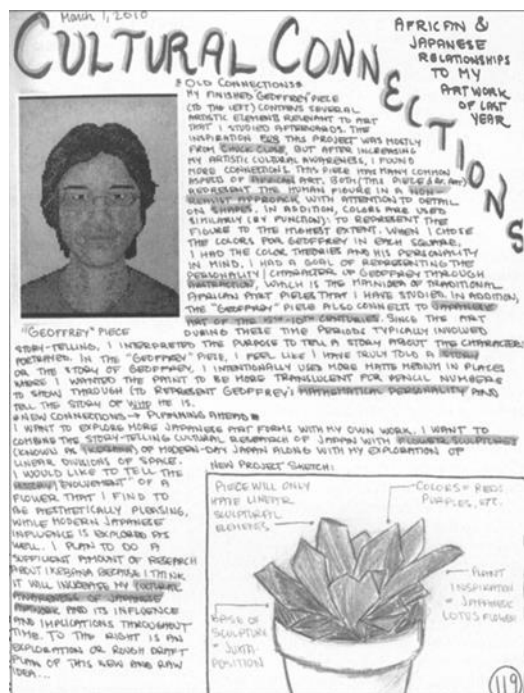 March 1, 2010
CULTURAL CONNECTIONS
AFRICAN &
JAPANESE
RELATIONSHIPS
TO MY
ARTWORK
OF LAST
YEAR
*OLD CONNECTIONS*
MY FINISHED "GEOFFREY" PIECE
(TO THE LEFT) CONTAINS SEVERAL
ARTISTIC ELEMENTS RELEVANT TO ART
THAT I STUDIED AFTERWARDS. THE
INSPIRATION FOR THIS PROJECT WAS MOSTLY
FROM CHUCK CLOSE, BUT AFTER INCREASING
MY ARTISTIC CULTURAL AWARENESS, I FOUND
MORE CONNECTIONS. THIS PIECE HAS MANY COMMON
ASPECTS OF AFRICAN ART. BOTH (THIS PIECE & Af. Art)
REPRESENT THE HUMAN FIGURE IN A NON-
REALIST APPROACH WITH ATTENTION TO DETAIL
ON SHAPES. IN ADDITION, COLORS ARE USED
SIMILARLY (BY FUNCTION): TO REPRESENT THE
FIGURE TO THE HIGHEST EXTENT. WHEN I CHOSE
THE COLORS FOR GEOFFREY IN EACH SQUARE,
I HAD THE COLOR THEORIES AND HIS PERSONALITY
IN MIND. I HAD A GOAL OF REPRESENTING THE
PERSONALITY/CHARACTER OF GEOFFREY THROUGH
ABSTRACTION, WHICH IS THE MAIN IDEA OF TRADITIONAL
AFRICAN ART PIECES THAT I HAVE STUDIED. IN ADDITION,
THE "GEOFFREY" PIECE ALSO CONNECTS TO JAPANESE
ART OF THE CENTURIES. SINCE THE ART
DURING THESE TIME PERIODS TYPICALLY INVOLVED
"GEOFFREY" PIECE
STORY-TELLING, I INTERPRETED THE PURPOSE TO TELL A STORY ABOUT THE CHARACTER
PORTRAYED. IN THE "GEOFFREY" PIECE, I FEEL LIKE I HAVE TRULY TOLD A STORY
OR THE STORY OF GEOFFREY. I INTENTIONALLY USED MORE MATTE MEDIUM IN PLACES
WHERE I WANTED THE PAINT TO BE MORE TRANSLUCENT FOR PENCIL NUMBERS
TO SHOW THROUGH (TO REPRESENT GEOFFREY'S MATHEMATICAL PERSONALITY AND
TELL THE STORY OF WHO HE IS.
*NEW CONNECTIONS → PLANNING AHEAD*
I WANT TO EXPLORE MORE JAPANESE ART FORMS WITH MY OWN WORK. I WANT TO
COMBINE THE STORY-TELLING CULTURAL RESEARCH OF JAPAN WITH FLOWER SCULPTURES
(KNOWN AS IKEBANA) OF MODERN-DAY JAPAN ALONG WITH MY EXPLORATION OF
LINEAR DIVISIONS OF SPACE.
I WOULD LIKE TO TELL THE
HISTORY/"EVOLVEMENT" OF A
FLOWER THAT I FIND TO
BE AESTHETICALLY PLEASING,
WHILE MODERN JAPANESE
INFLUENCE IS EXPLORED AS
WELL. I PLAN TO DO A
SUFFICIENT AMOUNT OF RESEARCH
ABOUT IKEBANA BECAUSE I THINK
IT WILL INCREASE MY CULTURAL
AWARENESS OF JAPANESE
ARTWORK AND ITS INFLUENCE
AND IMPLICATIONS THROUGHOUT
TIME. TO THE RIGHT IS AN
EXPLORATION OR ROUGH DRAFT
PLAN OF THIS NEW AND RAW
IDEA...
NEW PROJECT SKETCH:
PIECE WILL ONLY
HAVE LINEAR
SCULPTURAL
ELEMENTS
COLORS = REDS
PURPLES, ETC.
PLANT
INSPIRATION
= JAPANESE
LOTUS FLOWER
BASE OF
SCULPTURE
= JUXTA-
POSITION
119